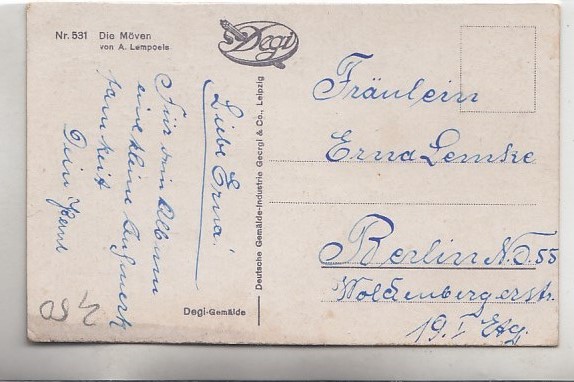 Nr. 531 Die Möven
von A. Lempoels
Degi
Liebe Erna!
Für dein Album
eine kleine Aufmerk
samkeit
Dein
Degi-Gemälde
Deutsche Gemälde-Industrie Georgi & Co., Leipzig
Fräulein
Erna Lemke
Berlin N.O. 55
Wolckenbergerstr.
19. I Etg.